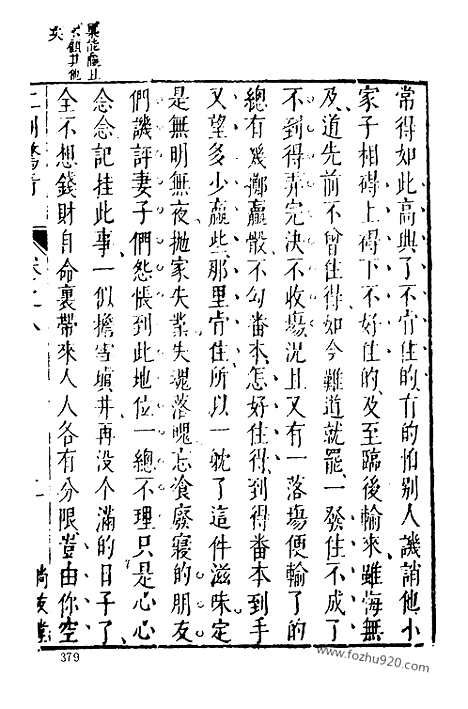 常得如此高興了不肯住的有的怕别人譏誚他小
家子相碍上碍下不好住的及至臨後輸來雖悔無
及道先前不曾住得如今難道就罷一發住不成了
不到得弄完決不收場況且又有一落場便輸了的
總有幾擲贏骰不勾番本怎好住得到得番本到手
又望多少贏些那里肯住所以一躭了這件滋味定
是無明無夜抛家失業失魂落魄忘飡廢寢的朋友
們譏評妻子們怨悵到此地位一總不理只是心心
念念記挂此事一似擔雪填井再没个滿的日子了
全不想錢財自命裏帶來人人各有分限豈由你空
二刻驚奇
卷之八
尚友堂
379
www.fozhu920.com